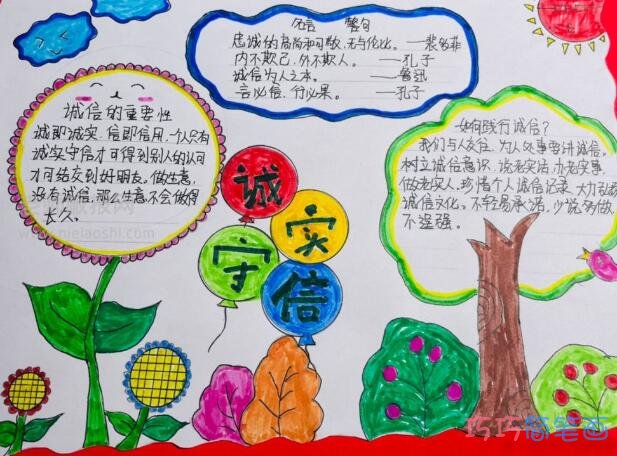 名言 警句
忠诚的高尚和可敬,无与伦比。——裴多菲
内不欺己,外不欺人。——孔子
诚信为人之本。——鲁迅
言必信,行必果。——孔子
诚信的重要性
诚即诚实,信即信用,一个人只有
诚实守信才可得到别人的认可
才可结交到好朋友。做生意,
没有诚信,那么生意不会做得
长久。
诚
实
守
信
如何践行诚信?
我们与人交往、为人处事要讲诚信。
树立诚信意识,说老实话,办老实事,
做老实人,珍惜个人诚信记录,大力弘扬
诚信文化。不轻易承诺,少说多做,
不逞强。
www.njelaoshi.com
巧巧简笔画